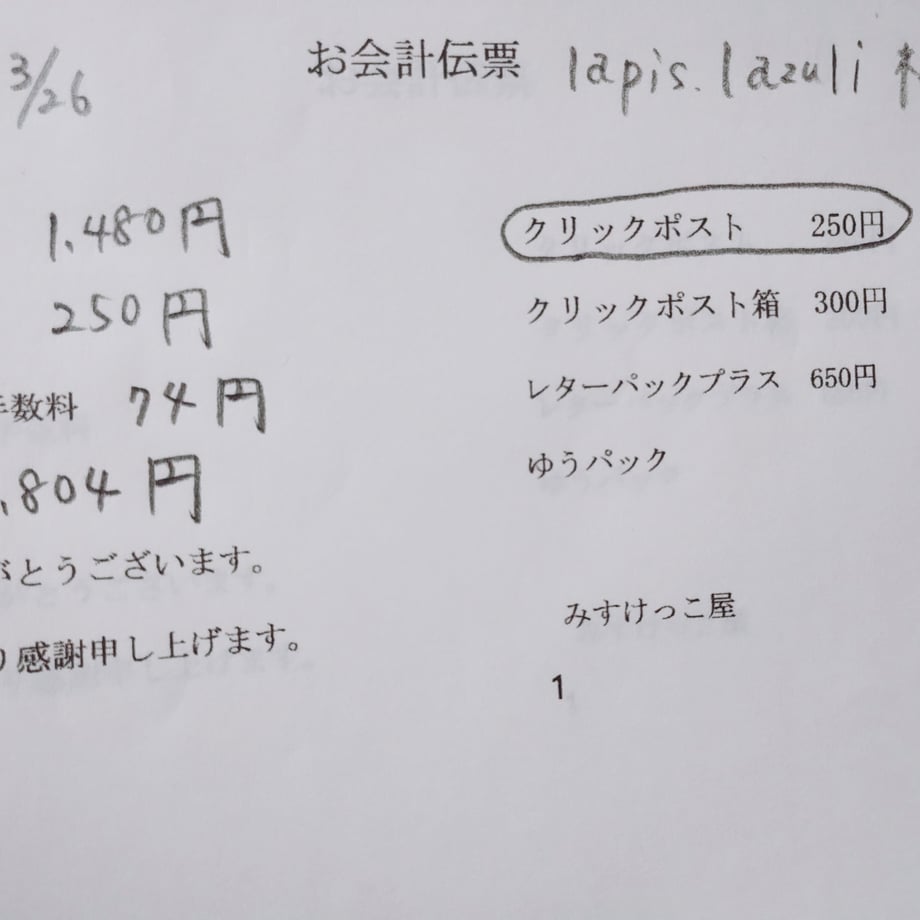 3/26
お会計伝票 lapis.lazuli
1,480円
250円
数料 74円
,804円
がとうございます。
り感謝申し上げます。
クリックポスト 250円
クリックポスト箱 300円
レターパックプラス 650円
ゆうパック
みすけっこ屋
1